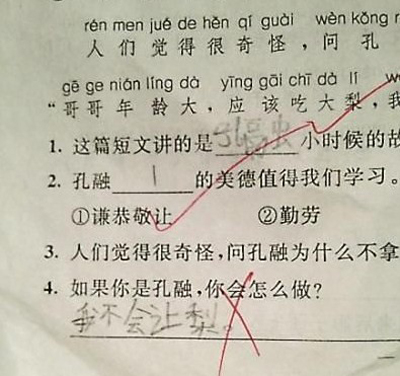 rén men jué de hěn qí guài wèn kǒng r
人们觉得很奇怪，问孔
gē ge nián líng dà yīng gāi chī dà lí w
“哥哥年龄大，应该吃大梨，我
1. 这篇短文讲的是孔融小时候的故
2. 孔融1的美德值得我们学习。
①谦恭敬让 ②勤劳
3. 人们觉得很奇怪，问孔融为什么不拿
4. 如果你是孔融，你会怎么做？
我不会让梨。